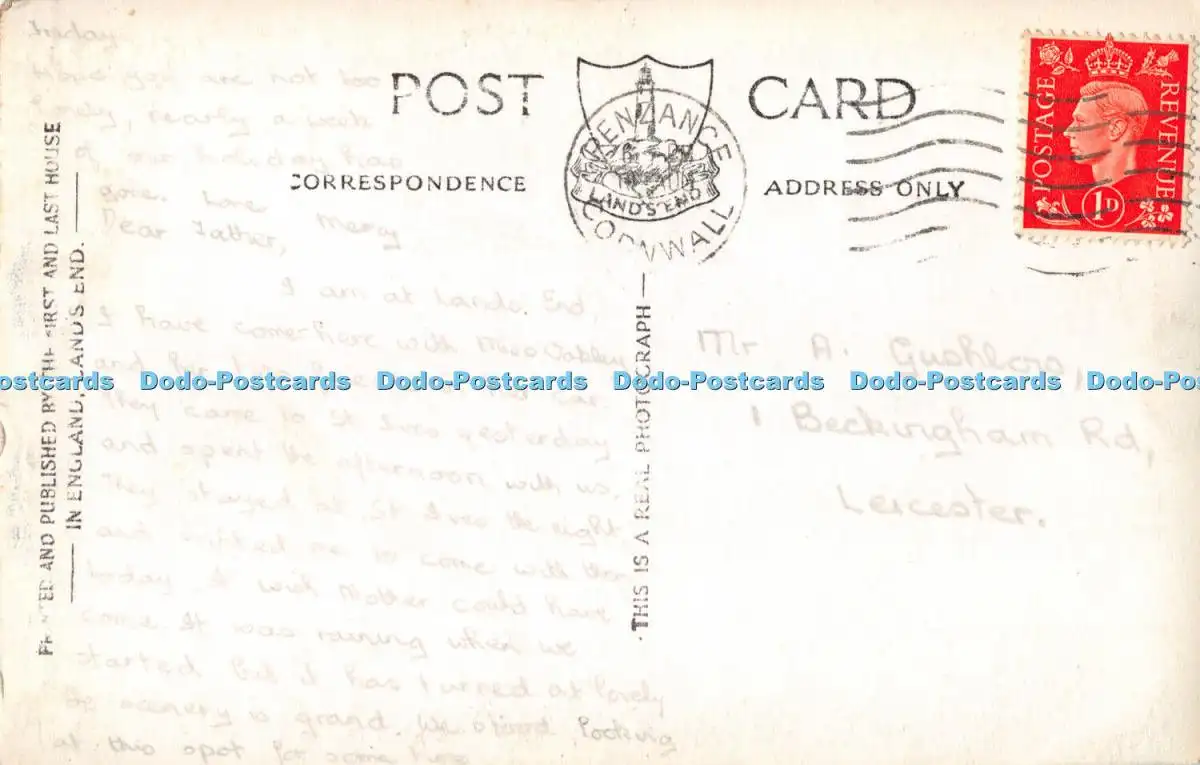 Friday
Hope you are not too
lonely, nearly a week
of our holiday has
gone. Love Mary
Dear Father,
I am at Lands End,
I have come here with Miss
and her
They came to St Ives yesterday
and spent the afternoon with us.
They stayed at St Ives the night
and invited me to come with them
today I wish Mother could have
come It was raining when we
started but it has turned out lovely
The scenery is grand. We stood looking
at this spot for some time
PRINTED AND PUBLISHED BY THE FIRST AND LAST HOUSE
IN ENGLAND, LAND'S END.
POST CARD
CORRESPONDENCE
ADDRESS ONLY
LAND'S END
PENZANCE
CORNWALL
POSTAGE
REVENUE
1D
THIS IS A REAL PHOTOGRAPH
Mr A.
1 Beckingham Rd,
Leicester.
ostcards Dodo-Postcards Dodo-Postcards Dodo-Postcards Dodo-Postcards Dodo-Post